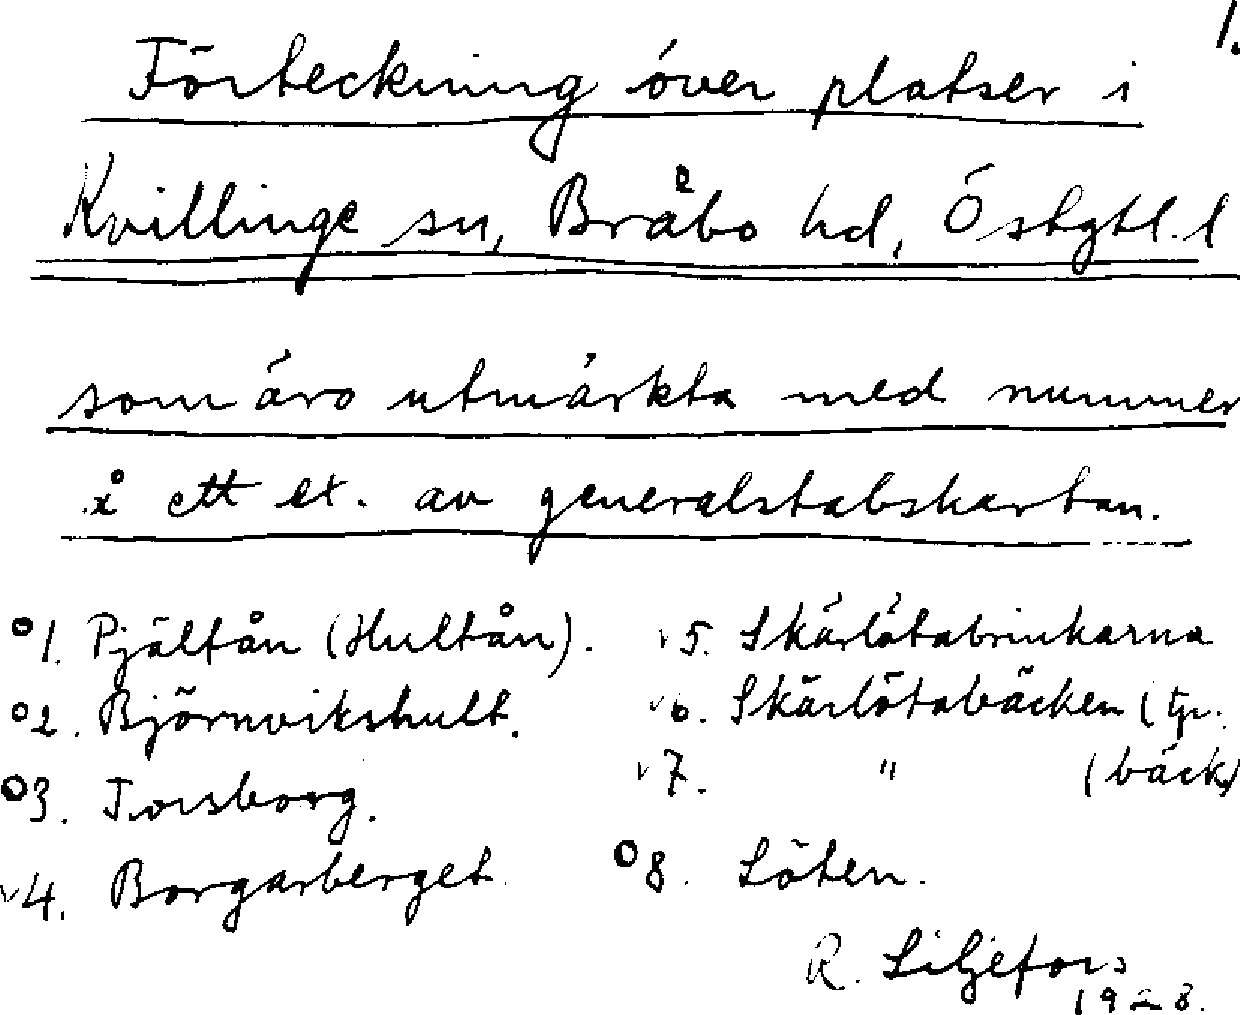 1.
Förteckning över platser i
Kvillinge sn, Bråbo hd, Östgtl. l
som äro utmärkta med nummer
å ett ex. av generalstabskartan.
o1. Pjältån (Hultån).
o2. Björnvikshult.
o3. Torsborg.
v4. Borgarberget.
v5. Skärlötabrinkarna
v6. Skärlötabäcken (tp.
v7. " (bäck)
o8. Löten.
R. Liljefors
1928.